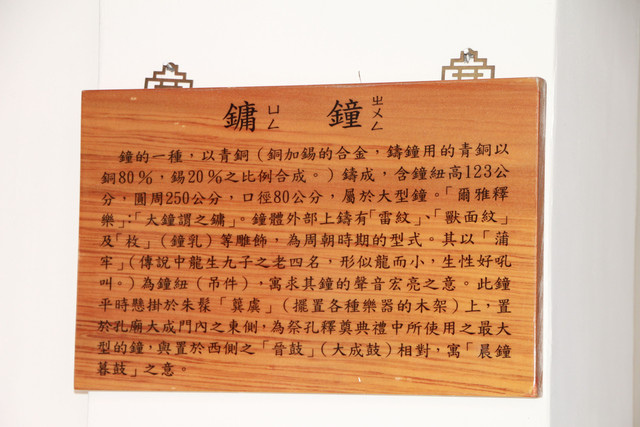 鏞ㄩㄥ 鐘ㄓㄨㄥ
鐘的一種，以青銅（銅加錫的合金，鑄鐘用的青銅以
銅80％，錫20％之比例合成。）鑄成，含鐘紐高123公
分，圓周250公分，口徑80公分，屬於大型鐘。「爾雅釋
樂」：「大鐘謂之鏞」。鐘體外部上鑄有「雷紋」、「獸面紋」
及「枚」（鐘乳）等雕飾，為周朝時期的型式。其以「蒲
牢」（傳說中龍生九子之老四名，形似龍而小，生性好吼
叫。）為鐘紐（吊件），寓求其鐘的聲音宏亮之意。此鐘
平時懸掛於朱髹「簨虡」（擺置各種樂器的木架）上，置
於孔廟大成門內之東側，為祭孔釋奠典禮中所使用之最大
型的鐘，與置於西側之「晉鼓」（大成鼓）相對，寓「晨鐘
暮鼓」之意。